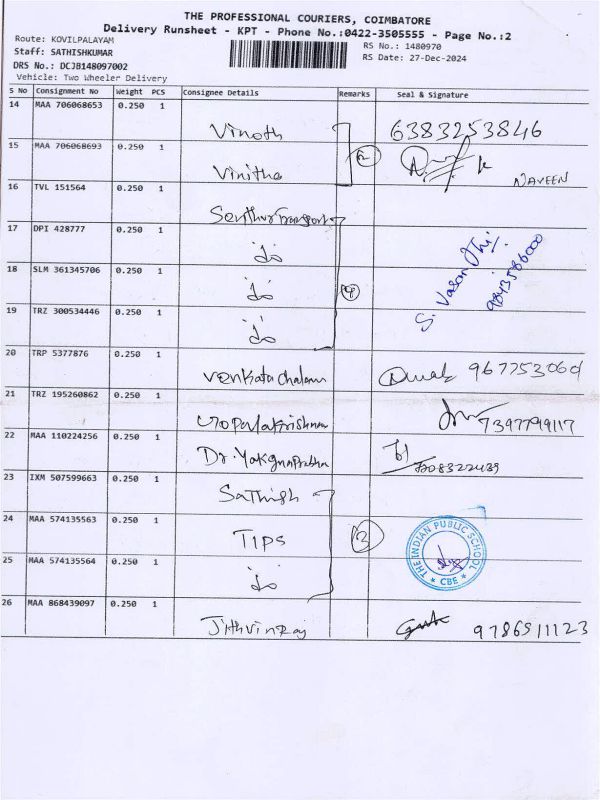 THE PROFESSIONAL COURIERS, COIMBATORE
Delivery Runsheet - KPT - Phone No.:0422-3505555 - Page No.:2
Route: KOVILPALAYAM
RS No.: 1480970
Staff: SATHISHKUMAR
RS Date: 27-Dec-2024
DRS No.: DCJB148097002
Vehicle: Two Wheeler Delivery
S No Consignment No Weight PCS Consignee Details Remarks Seal & Signature
14 MAA 706068653 0.250 1 Vinoth 6383253846
15 MAA 706068693 0.250 1 Vinitha 2 NAVEEN
16 TVL 151564 0.250 1 Senthur Transport
17 DPI 428777 0.250 1 do S. Vasan
18 SLM 361345706 0.250 1 do 4 9843586000
19 TRZ 300534446 0.250 1 do
20 TRP 5377876 0.250 1 Venkatachalam 967753060
21 TRZ 195260862 0.250 1 Gopalakrishnan 7397799117
22 MAA 110224256 0.250 1 Dr. Yakgnaprabha
23 IXM 507599663 0.250 1 Sathish
24 MAA 574135563 0.250 1 TIPS 3 THE INDIAN PUBLIC SCHOOL * CBE *
25 MAA 574135564 0.250 1 do
26 MAA 868439097 0.250 1 JithvinRaj 9786511123